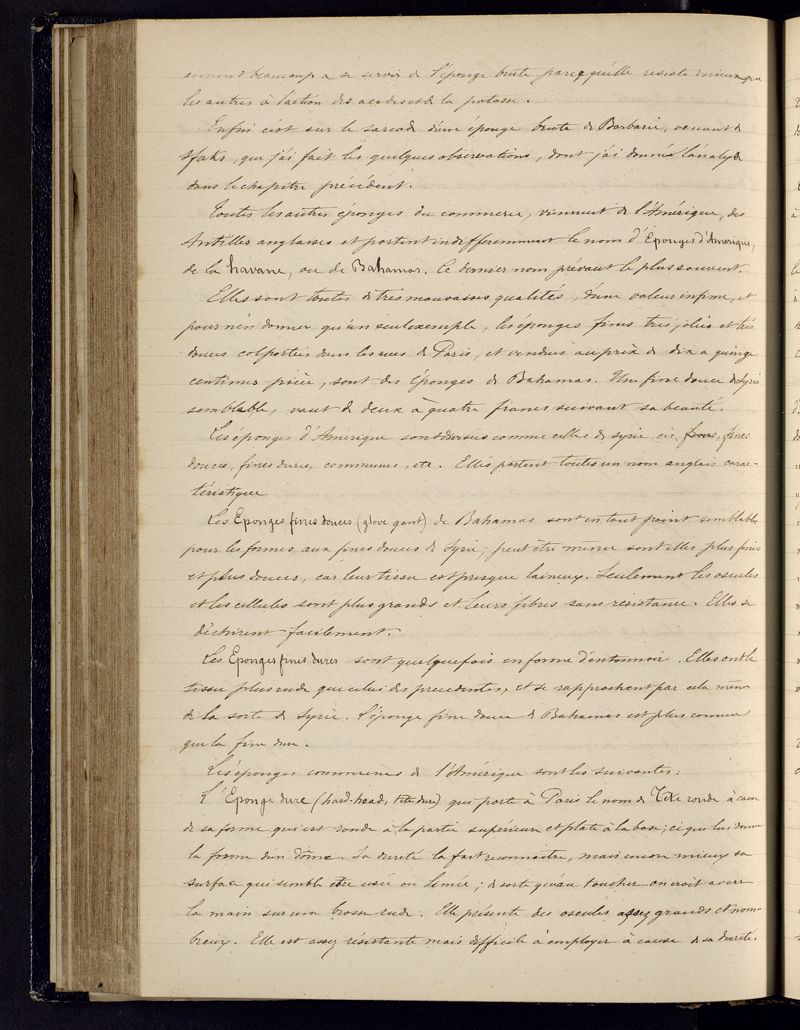 aiment beaucoup a se servir de l'éponge brute parcequ'elle resiste mieux que
les autres à l'action des acides et de la potasse.
Enfin c'est sur le sarcode d'une éponge brute de Barbarie, venant de
Sfaks, que j'ai fait les quelques observations, dont j'ai donné l'analyse
dans le chapitre précédent.
Toutes les autres éponges du commerce, viennent de l'Amérique, des
Antilles anglaises et portent indifferemment le nom d'Éponges d'Amerique,
de la havane, ou de Bahamas. Ce dernier nom prévaut le plus souvent.
Elles sont toutes de tres mauvaises qualités, d'une valeur infime, et
pour n'en donner qu'un seul exemple, les éponges fines tres jolies et très
douces colportées dans les rues de Paris, et vendues au prix de dix a quinze
centimes pièce, sont des éponges de Bahamas. Une fine douce de Syrie
semblable, vaut de deux à quatre francs suivant sa beauté.
Les éponges d'Amérique sont divisées comme celles de Syrie en fines, fines
douces, fines dures, communes, etc. Elles portent toutes un nom anglais carac-
téristique
Les Eponges fines douces (glove gant) de Bahamas sont en tout point semblables
pour les formes aux fines douces de Syrie; peut être même sont elles plus fines
et plus douces, car leur tissu est presque laineux. Seulement les oscules
et les cellules sont plus grands et leurs fibres sans résistance. Elles se
déchirent facilement.
Les Eponges fines dures sont quelquefois en forme d'entonnoir. Elles ont le
tissu plus rude que celui des precedentes, et se rapprochent par cela même
de la sorte de Syrie. L'éponge fine douce de Bahamas est plus connue
que la fine dure.
Les éponges communes de l'Amérique sont les suivantes:
L'Eponge dure (hard-head, tête dure) qui porte à Paris le nom de Tête ronde à cause
de sa forme qui est ronde à la partie supérieure et plate à la base; ce qui lui donne
la forme d'un dôme. Sa dureté la fait reconnaître, mais encore mieux sa
surface qui semble être usée ou limée; de sorte qu'au toucher on croit avoir
la main sur une brosse rude. Elle présente des oscules assez grands et nom-
breux. Elle est assez résistante mais difficile à employer à cause de sa dureté.